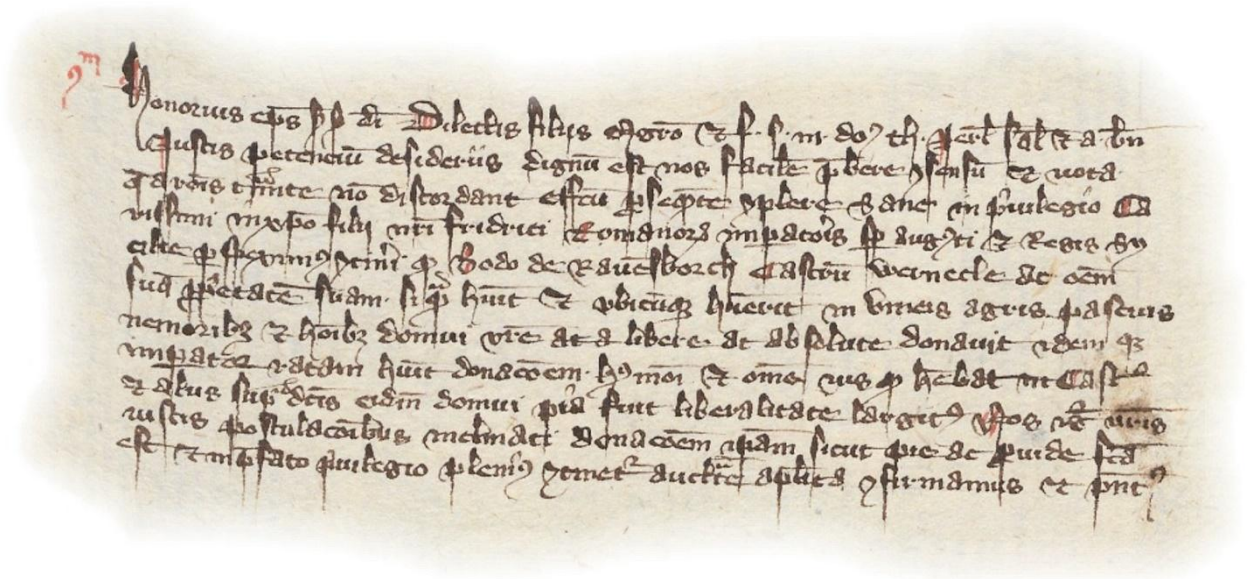 Honorius eps s s di Dilectis filijs magro et f. s. m. do th. Jerl sal et a bn
Justis petenciu desideriis dignu est nos facile pbere gsensu et uota
q a rois tmite no discordant effcu psequte gplere Sane in priuilegio Ca
rissimi in xpo filij nri Fridrici Romanor impatoris sp augti et Regis Sy
cilie pspeximus gtineri q Bodo de Rauesborch Castru wernecke ac oem
sua ppetate suam si qua huit et ubicumq huerit in vineis agris pascuis
nemoribz et hoibz domui vre at a libere ac absolute donauit idem q
impator ratam huit donacoem hmoi et ome ius q hebat in Castro
et alius supdcis eidm domui pria fuit liberalitate largitus Nos igr vris
iustis postulacoibus inclinati donacoem ipam sicut pie ac puide fca
est et in pfato priuilegio plenius gtinetr auctcte aplica gfirmamus et pnt